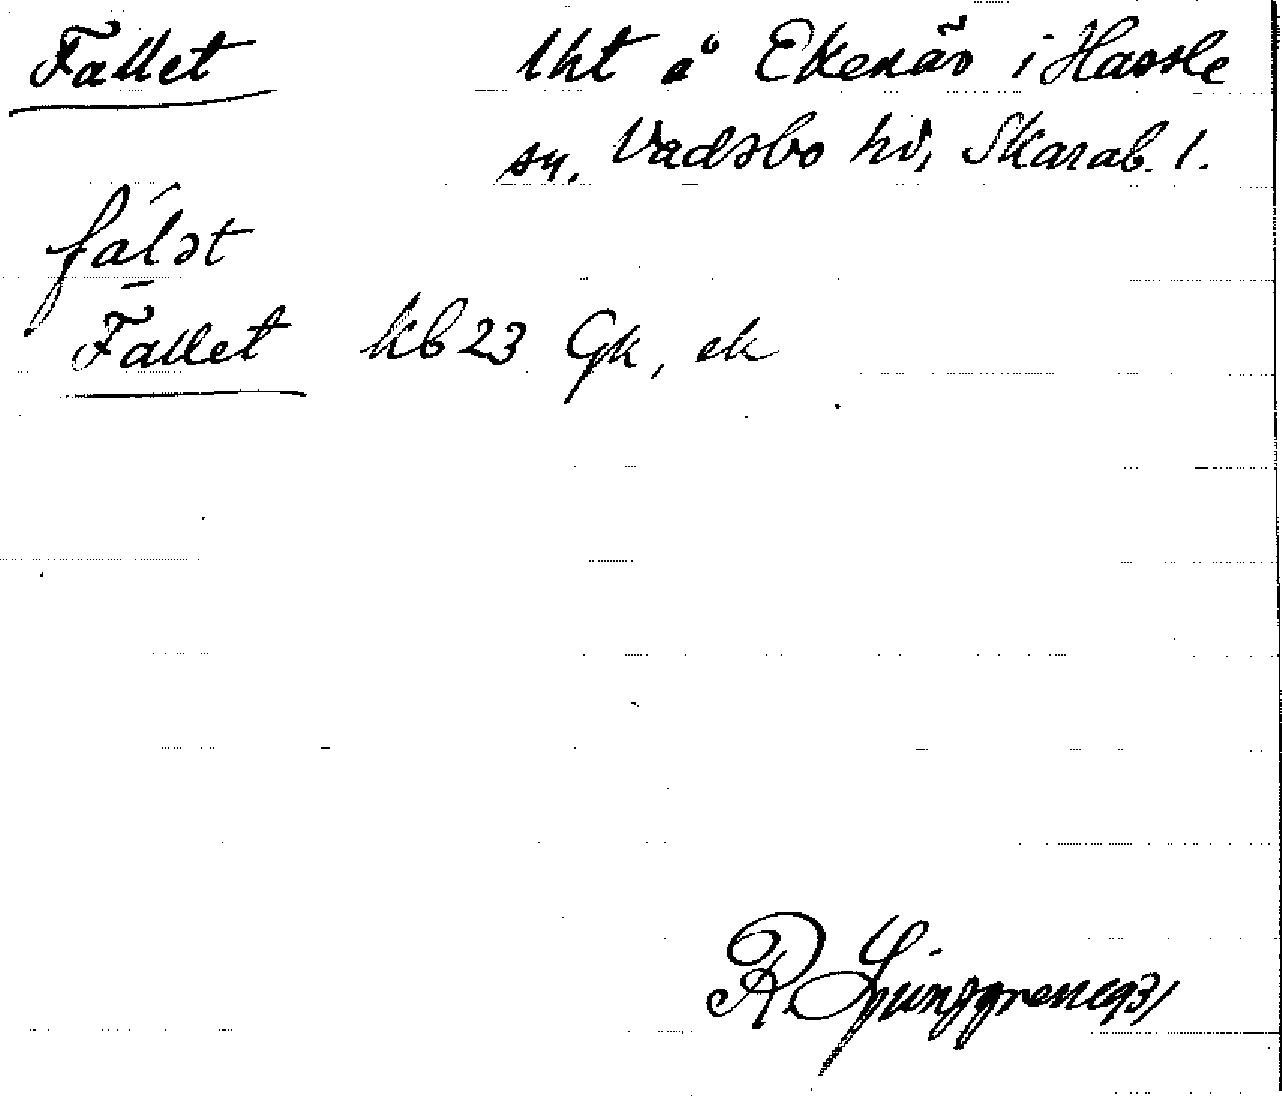 Fallet lht å Ekenäs i Hassle
sn. Vadsbo hd, Skarab. l.
fálət
Fallet kb 23 Gk, ek
R. Ljunggren 1931